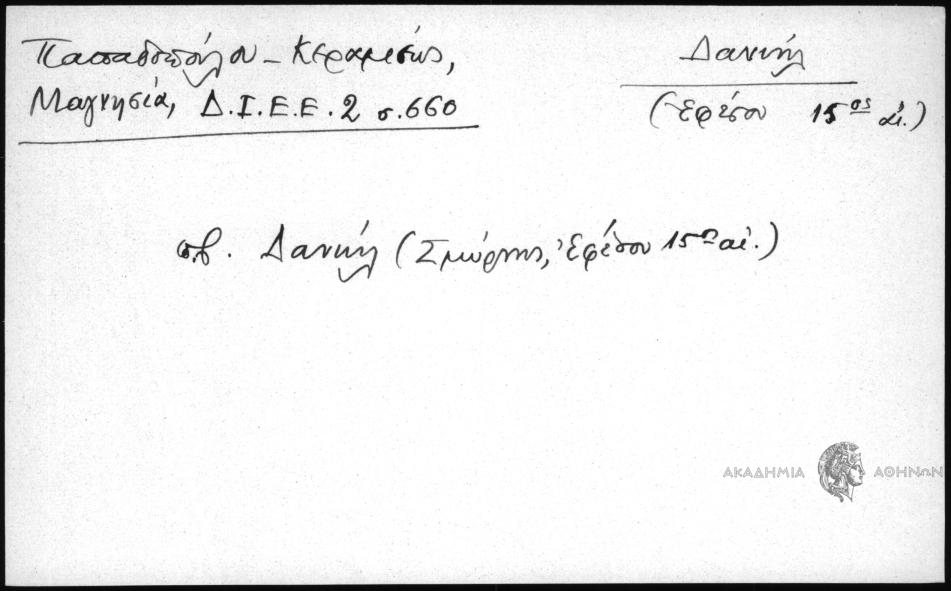 Παπαδοπούλου - Κεραμεύς,
Μαγνησία, Δ.Ι.Ε.Ε. 2 σ. 660
Δανιήλ
(Ἐφέσου 15ος αἰ.)
πβ. Δανιήλ (Σμύρνης, Ἐφέσου 15ος αἰ.)
ΑΚΑΔΗΜΙΑ ΑΘΗΝΩΝ